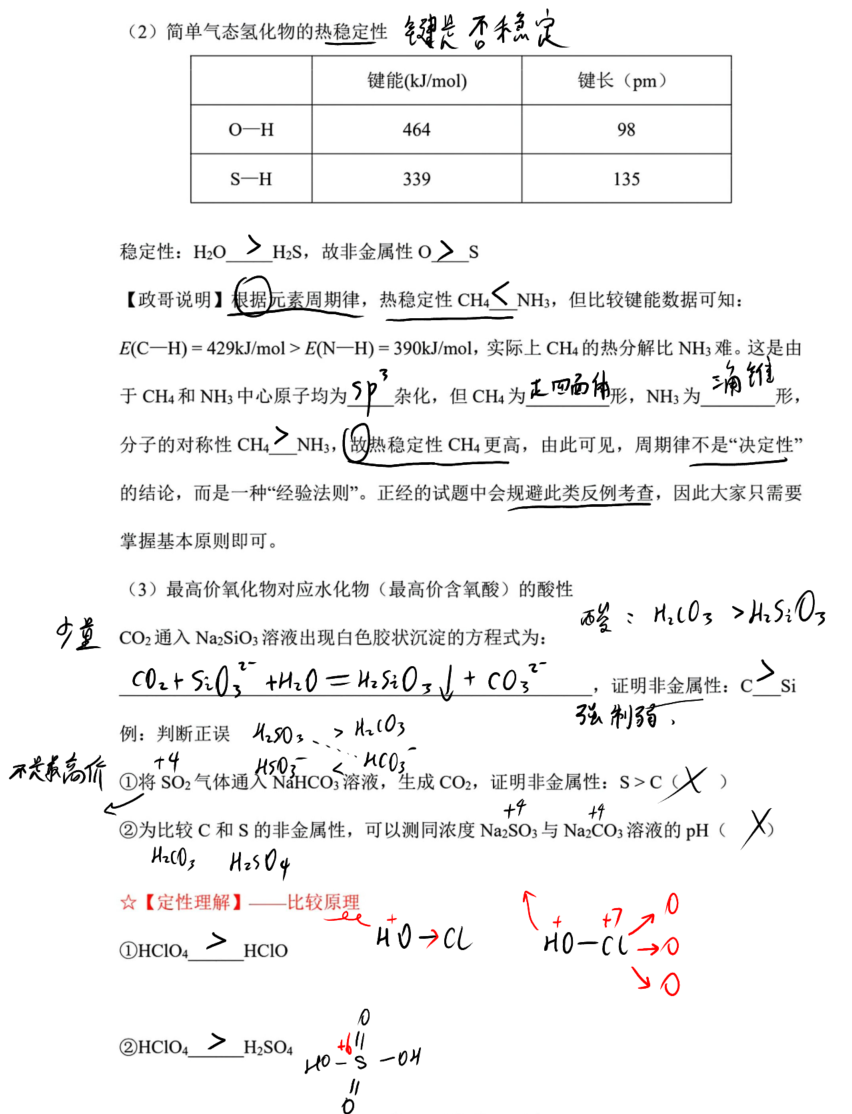 （2）简单气态氢化物的热稳定性 键是否稳定
键能(kJ/mol) 键长（pm）
O—H 464 98
S—H 339 135
稳定性：H₂O > H₂S，故非金属性 O > S
【政哥说明】根据元素周期律，热稳定性 CH₄ < NH₃，但比较键能数据可知：
E(C—H) = 429kJ/mol > E(N—H) = 390kJ/mol，实际上 CH₄ 的热分解比 NH₃ 难。这是由
于 CH₄ 和 NH₃ 中心原子均为 sp³ 杂化，但 CH₄ 为 正四面体 形，NH₃ 为 三角锥 形，
分子的对称性 CH₄ > NH₃，故热稳定性 CH₄ 更高，由此可见，周期律不是“决定性”
的结论，而是一种“经验法则”。正经的试题中会规避此类反例考查，因此大家只需要
掌握基本原则即可。
（3）最高价氧化物对应水化物（最高价含氧酸）的酸性
酸：H₂CO₃ > H₂SiO₃
少量 CO₂ 通入 Na₂SiO₃ 溶液出现白色胶状沉淀的方程式为：
CO₂ + SiO₃²⁻ + H₂O = H₂SiO₃↓ + CO₃²⁻ ，证明非金属性：C > Si
强制弱.
例：判断正误 H₂SO₃ > H₂CO₃
不是最高价 +4 HSO₃⁻ < HCO₃⁻
①将 SO₂ 气体通入 NaHCO₃ 溶液，生成 CO₂，证明非金属性：S > C（ X ）
+4 +4
②为比较 C 和 S 的非金属性，可以测同浓度 Na₂SO₃ 与 Na₂CO₃ 溶液的 pH（ X ）
H₂CO₃ H₂SO₄
☆【定性理解】——比较原理
①HClO₄ > HClO
+
HO→Cl
+ +7 O
HO—Cl→O
O
②HClO₄ > H₂SO₄
O
+6
HO—S—OH
O